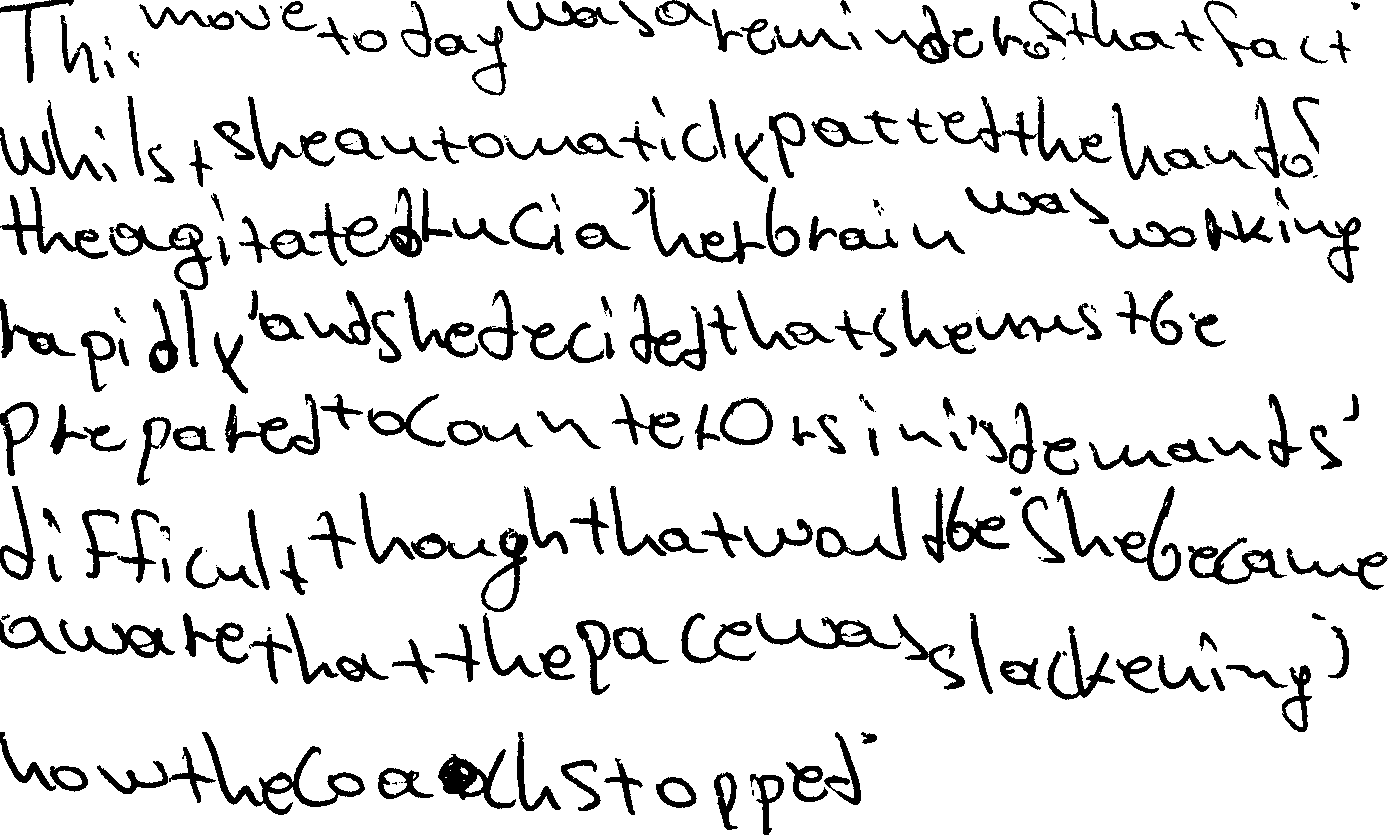 This move today was a reminder of that fact.
Whilst she automaticly patted the hand of
the agitated Lucia, her brain was working
rapidly, and she decided that she must be
prepared to counter Orsini's demands,
difficult though that would be. She became
aware that the pace was slackening,
now the coach stopped.